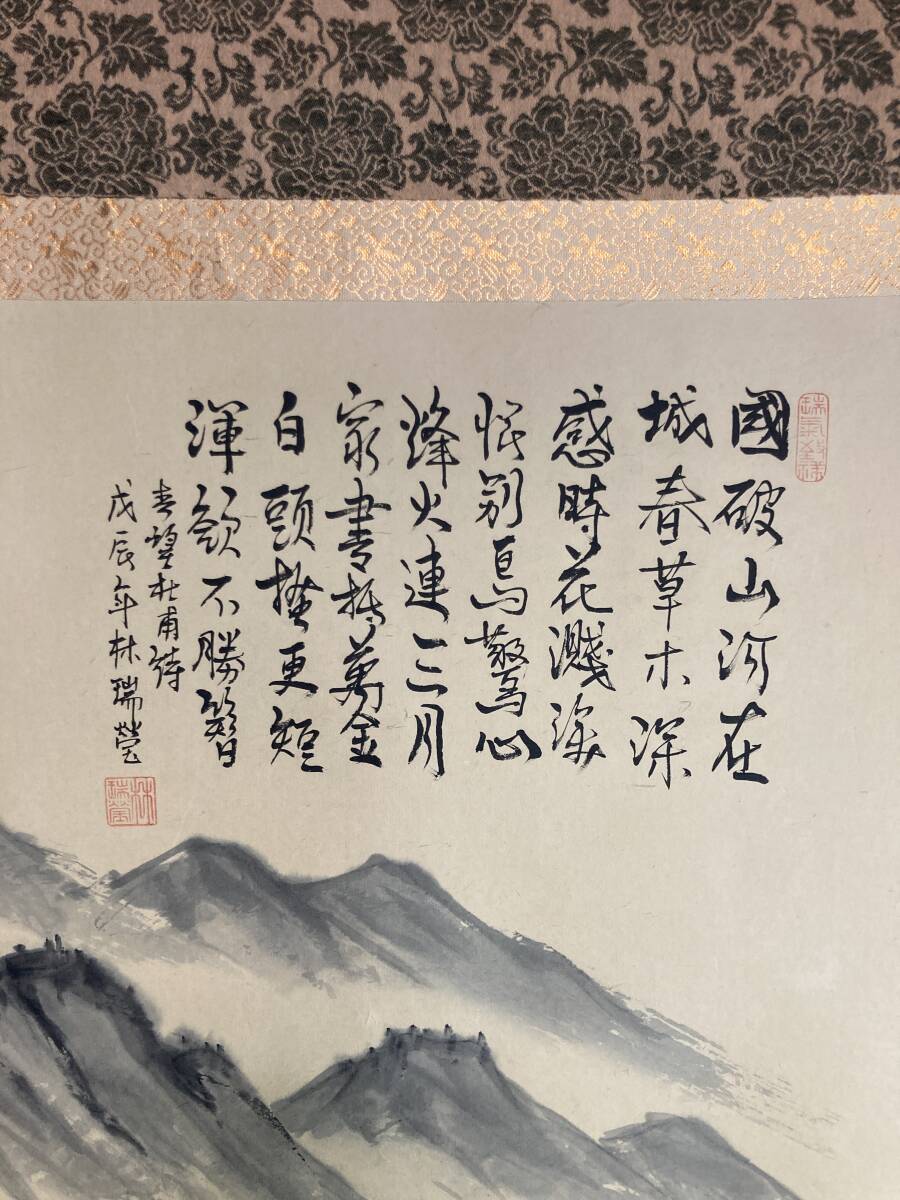 瑞氣致祥
國破山河在
城春草木深
感時花濺涙
恨別鳥驚心
烽火連三月
家書抵萬金
白頭搔更短
渾欲不勝簪
春望杜甫詩
戊辰年林瑞瑩
林瑞瑩